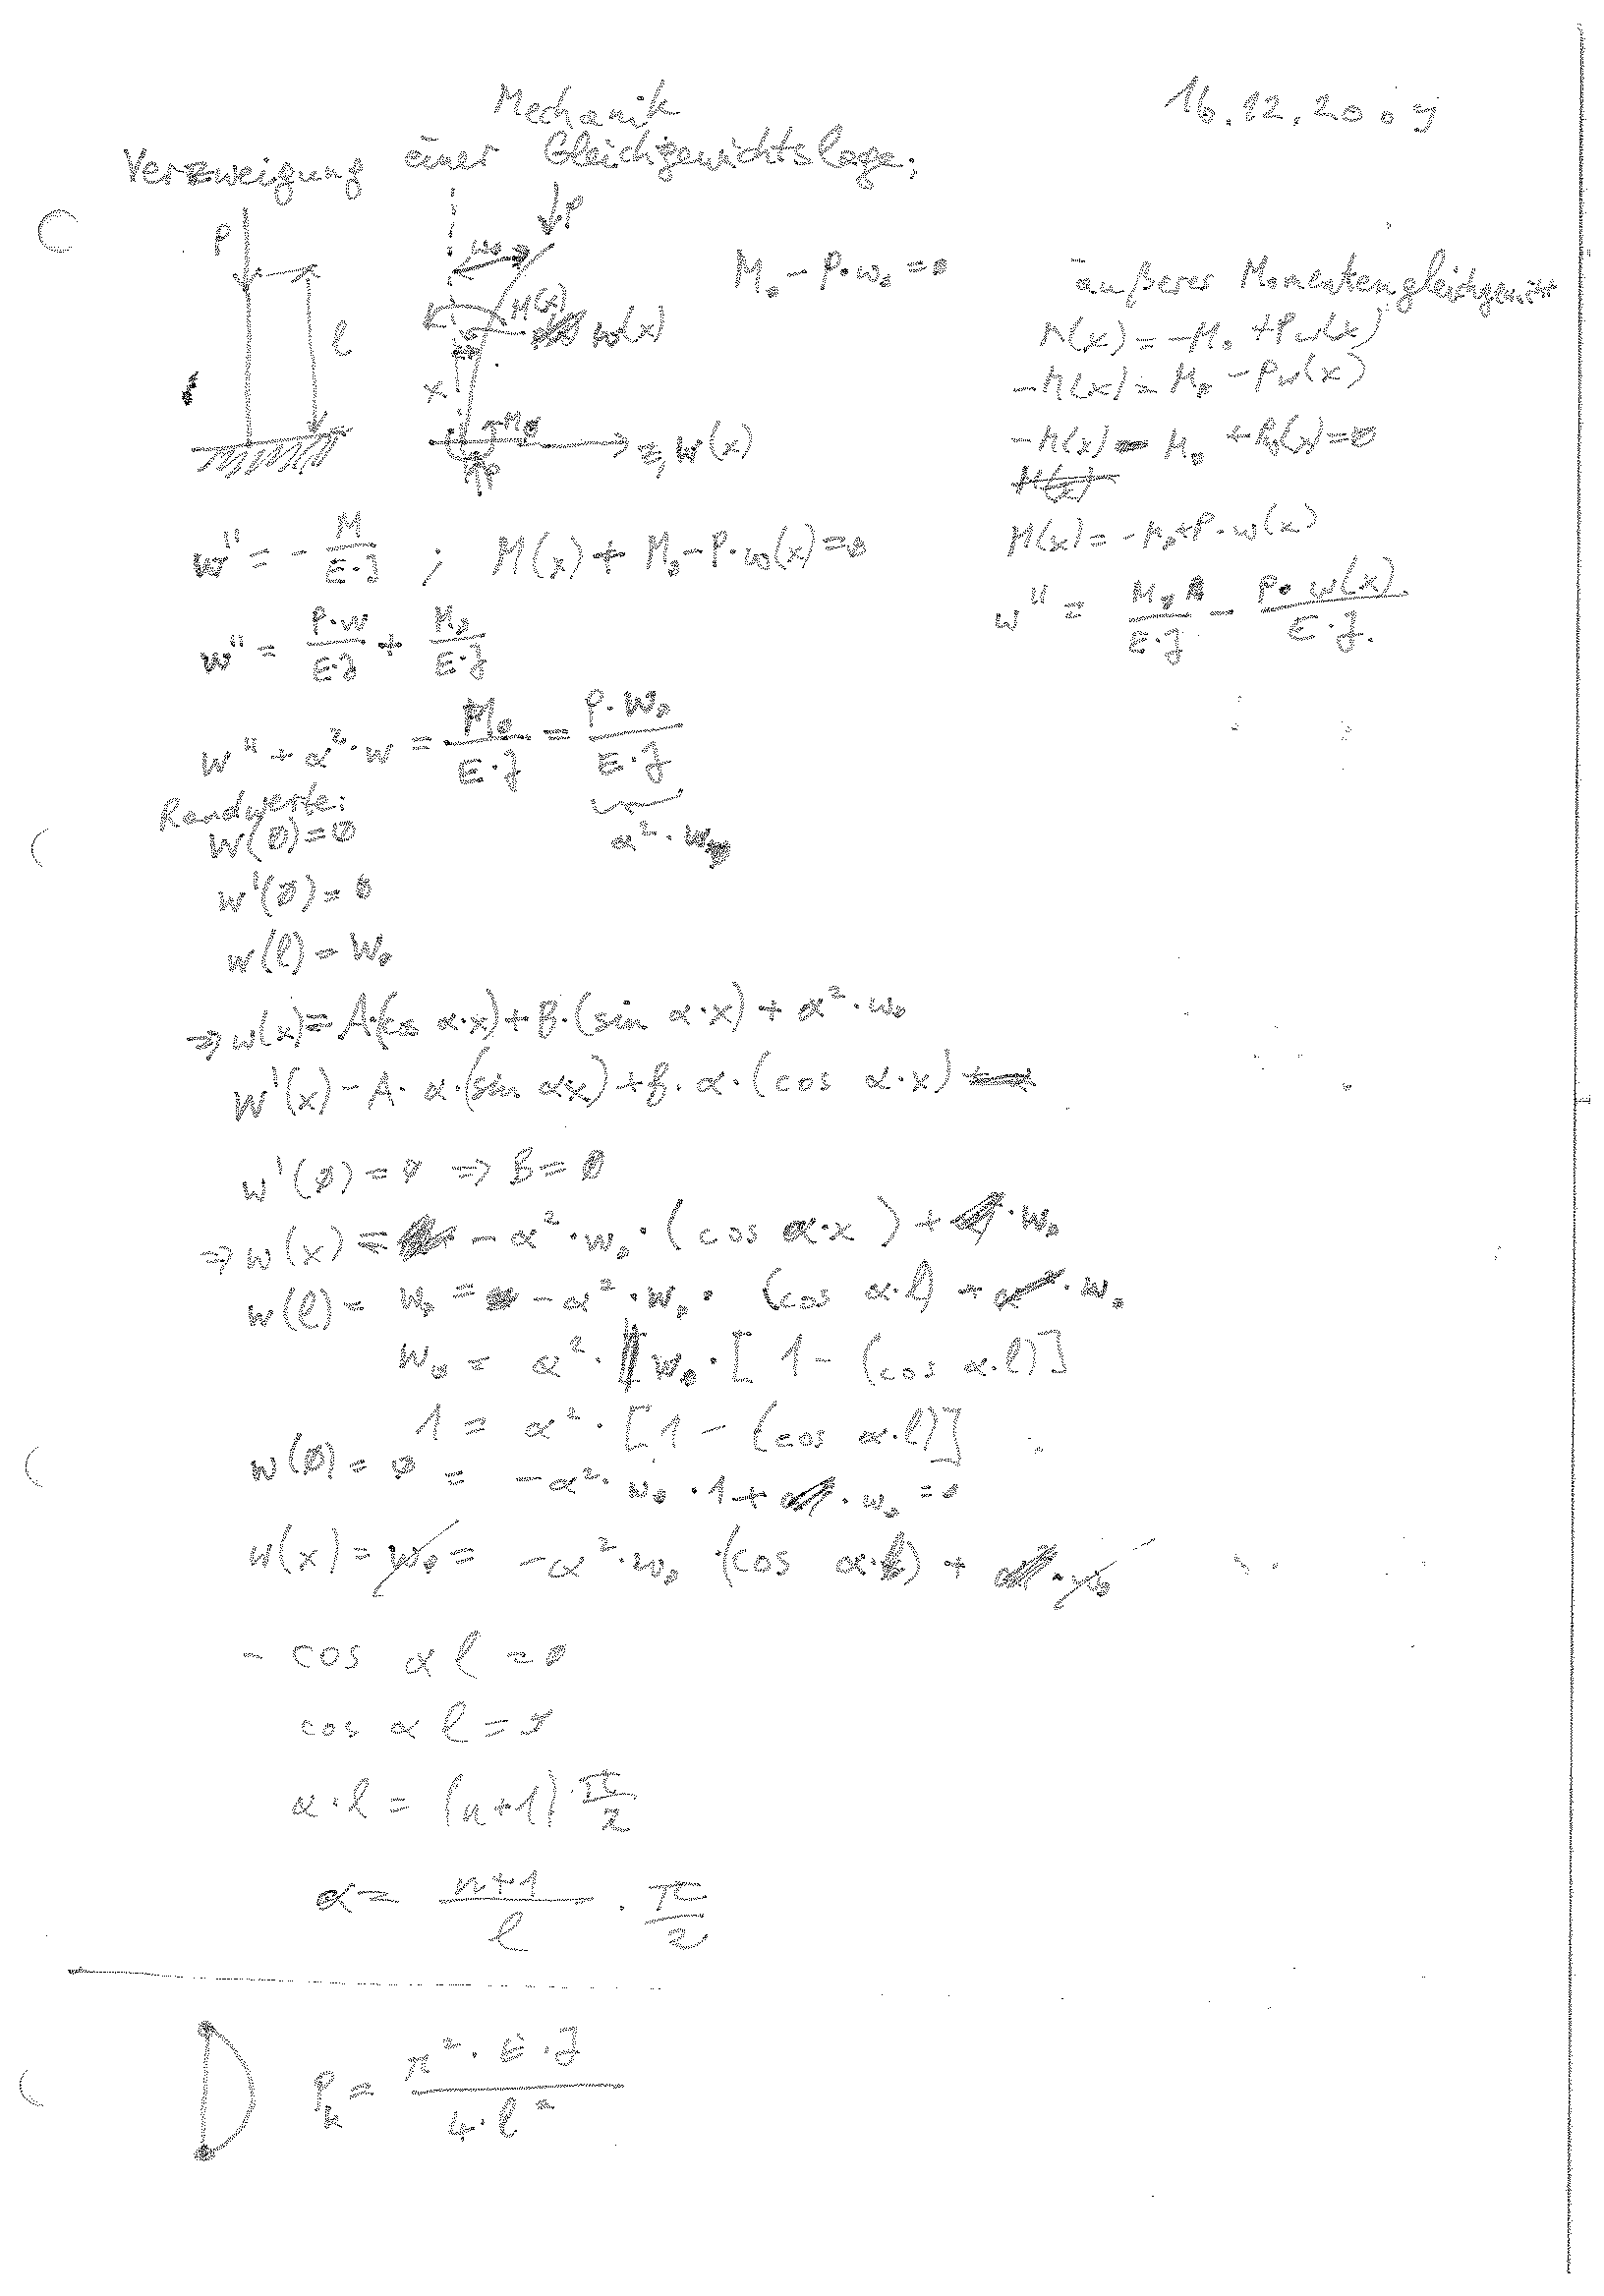 Mechanik
16.12.2009
Verzweigung einer Gleichgewichtslage;
P
l
w₀
P
M(x)
w(x)
x
M₀
P
z, w(x)
M₀ - P·w₀ = 0
äußerer Momentengleichgewicht
M(x) = -M₀ + P w(x)
-M(x) = M₀ - P w(x)
-M(x) - M₀ + P w(x) = 0
M(x) = -M₀ + P·w(x)
w'' = M₀/(E·J) - P·w(x)/(E·J)
w'' = - M/(E·J) ; M(x) + M₀ - P·w(x) = 0
w'' = P·w/(E·J) + M₀/(E·J)
w'' + α²·w = M₀/(E·J) = P·w₀/(E·J)
α²·w₀
Randwerte:
w(0) = 0
w'(0) = 0
w(l) = w₀
⇒ w(x) = A·(cos α·x) + B·(sin α·x) + α²·w₀
w'(x) - A·α·(sin αx) + B·α·(cos α·x)
w'(0) = 0 ⇒ B = 0
⇒ w(x) = - α²·w₀·(cos α·x) + ·w₀
w(l) = w₀ = - α²·w₀·(cos α·l) + ·w₀
w₀ = α²·w₀·[1 - (cos α·l)]
1 = α²·[1 - (cos α·l)]
w(0) = 0 = - α²·w₀·1 + ·w₀ = 0
w(x) = w₀ = - α²·w₀·(cos α·l) + ·w₀
- cos α l = 0
cos α l = 0
α·l = (n+1)·π/2
α = (n+1)/l · π/2
Pₖ = π²·E·J/(4·l²)